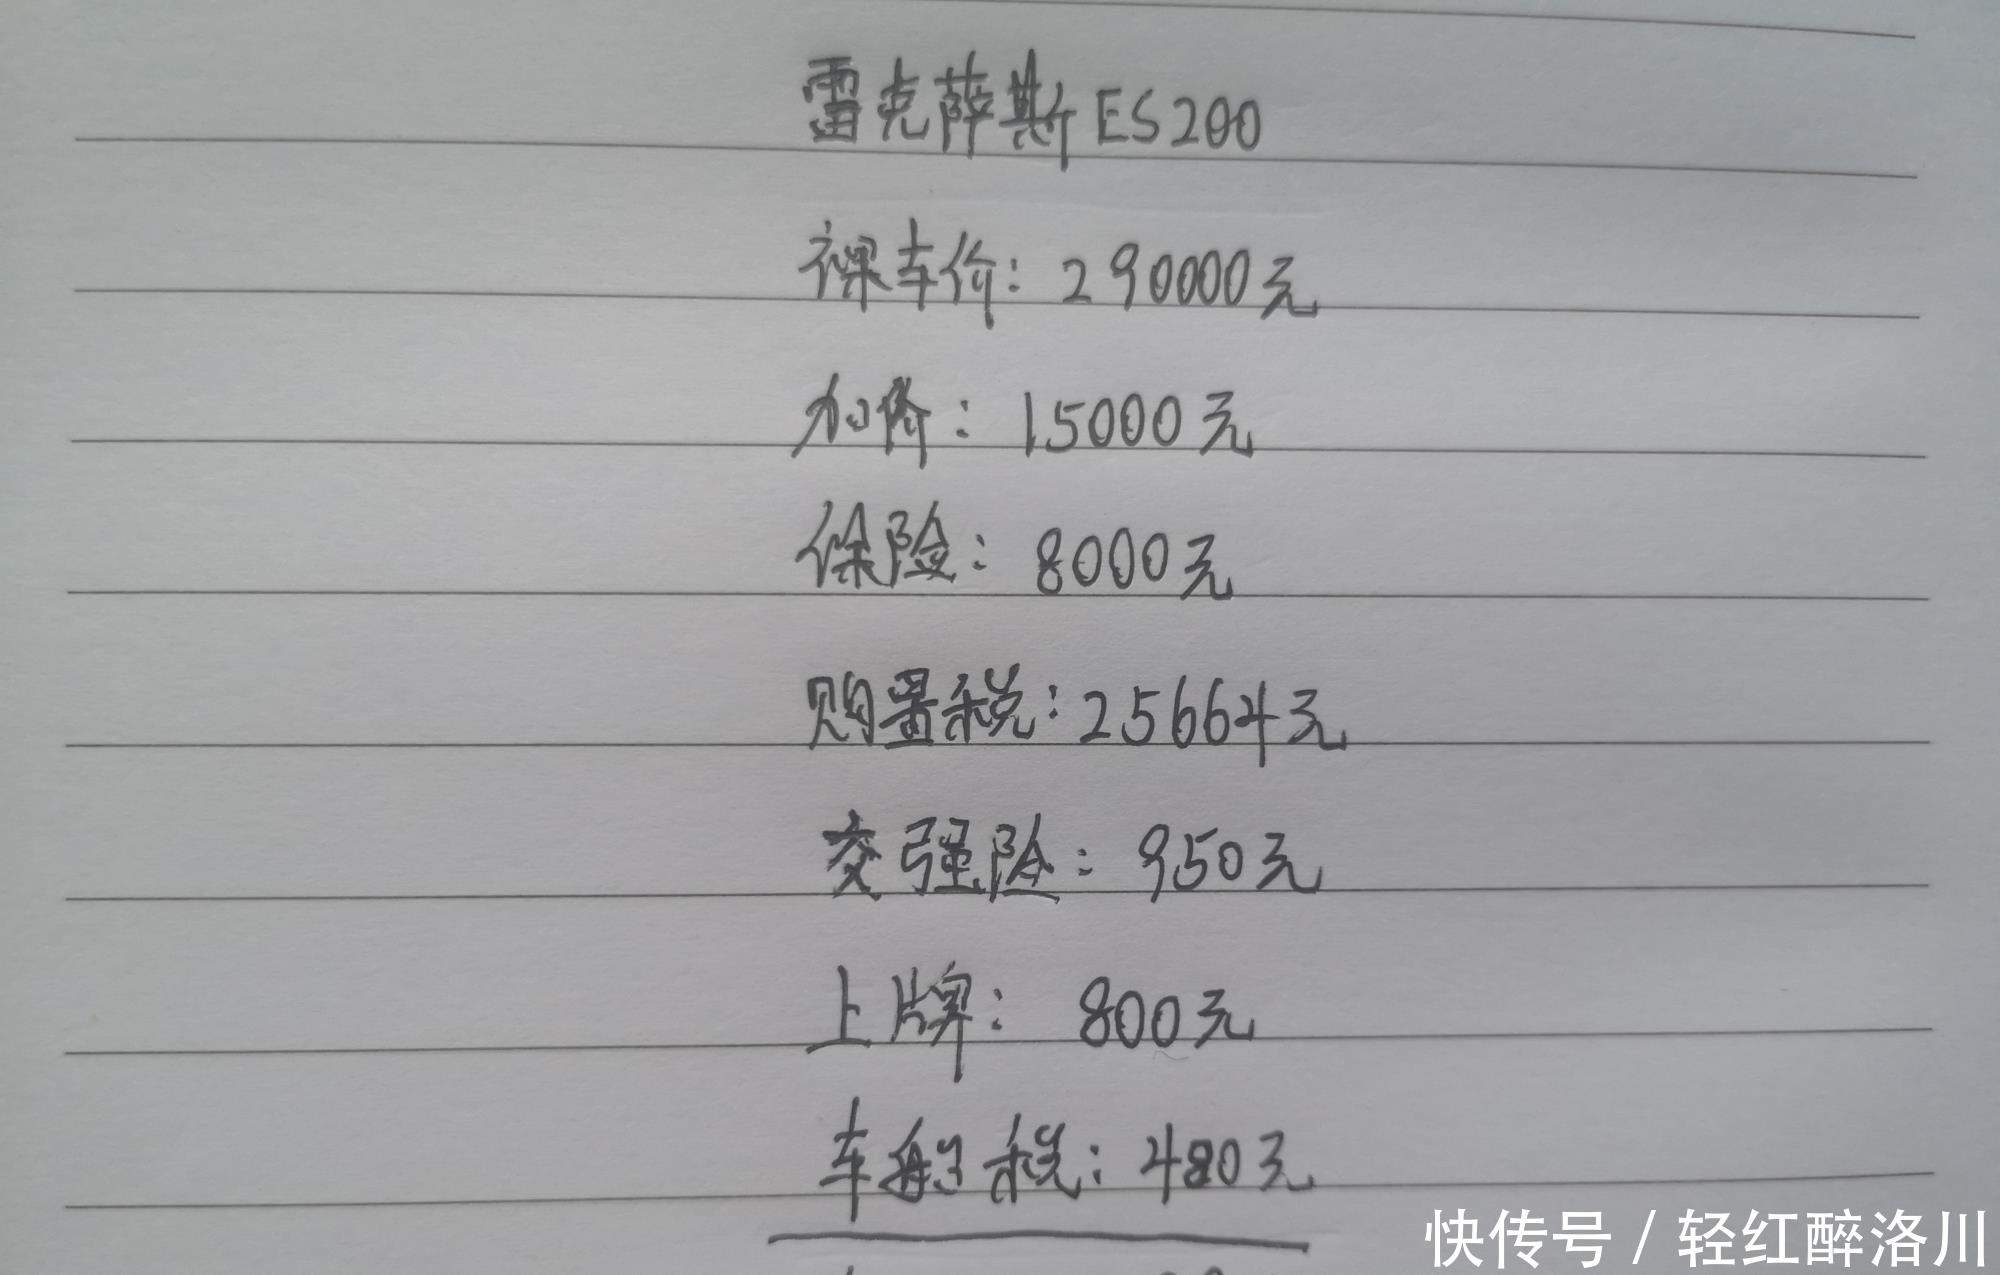 雷克萨斯ES200
裸车价：290000元
加价：15000元
保险：8000元
购置税：25664元
交强险：950元
上牌：800元
车船税：480元
快传号 / 轻红醉洛川